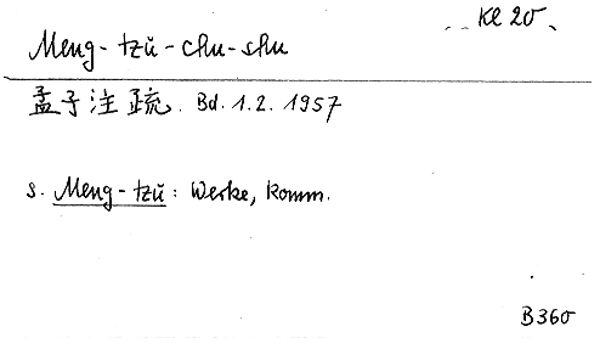 Kl 20
Meng-tzŭ-chu-shu
孟子注疏. Bd. 1.2. 1957
s. Meng-tzŭ: Werke, komm.
B360